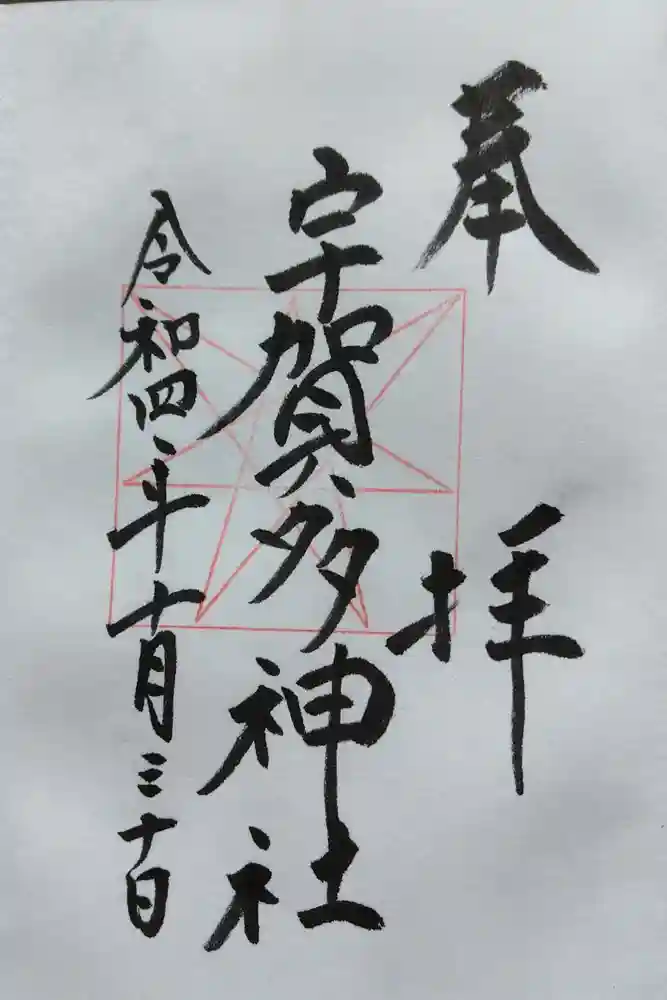 奉拝
宇賀多神社
令和四年十月三十日